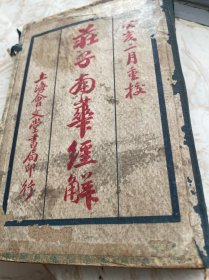 癸亥二月重校
莊子南華經解
上海會文堂書局印行